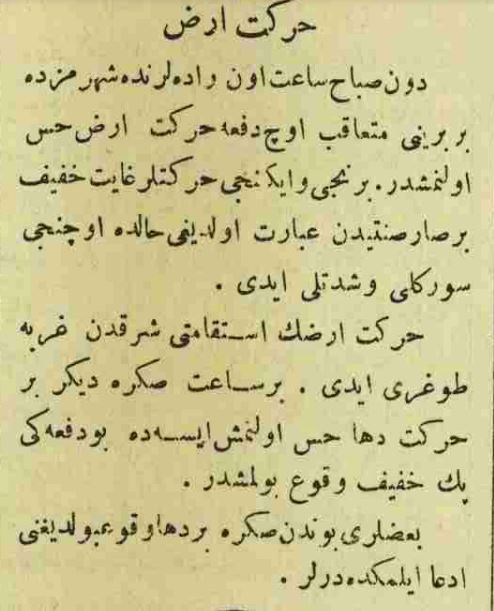 حركت ارض
دون صباح ساعت اون راده‌لرنده شهرمزده
بربرينى متعاقب اوچ دفعه حركت ارض حس
اولنمشدر. برنجى وايكنجى حركتلر غايت خفيف
برصارصنتيدن عبارت اولديغى حالده اوچنجى
سوركلى وشدتلى ايدى .
حركت ارضك استقامتى شرقدن غربه
طوغرى ايدى . برساعت صكره ديكر بر
حركت دها حس اولنمش ايسه‌ده بودفعه‌كى
پك خفيف وقوع بولمشدر .
بعضلرى بوندن صكره بردها وقوعبولديغنى
ادعا ايلمكده‌درلر .